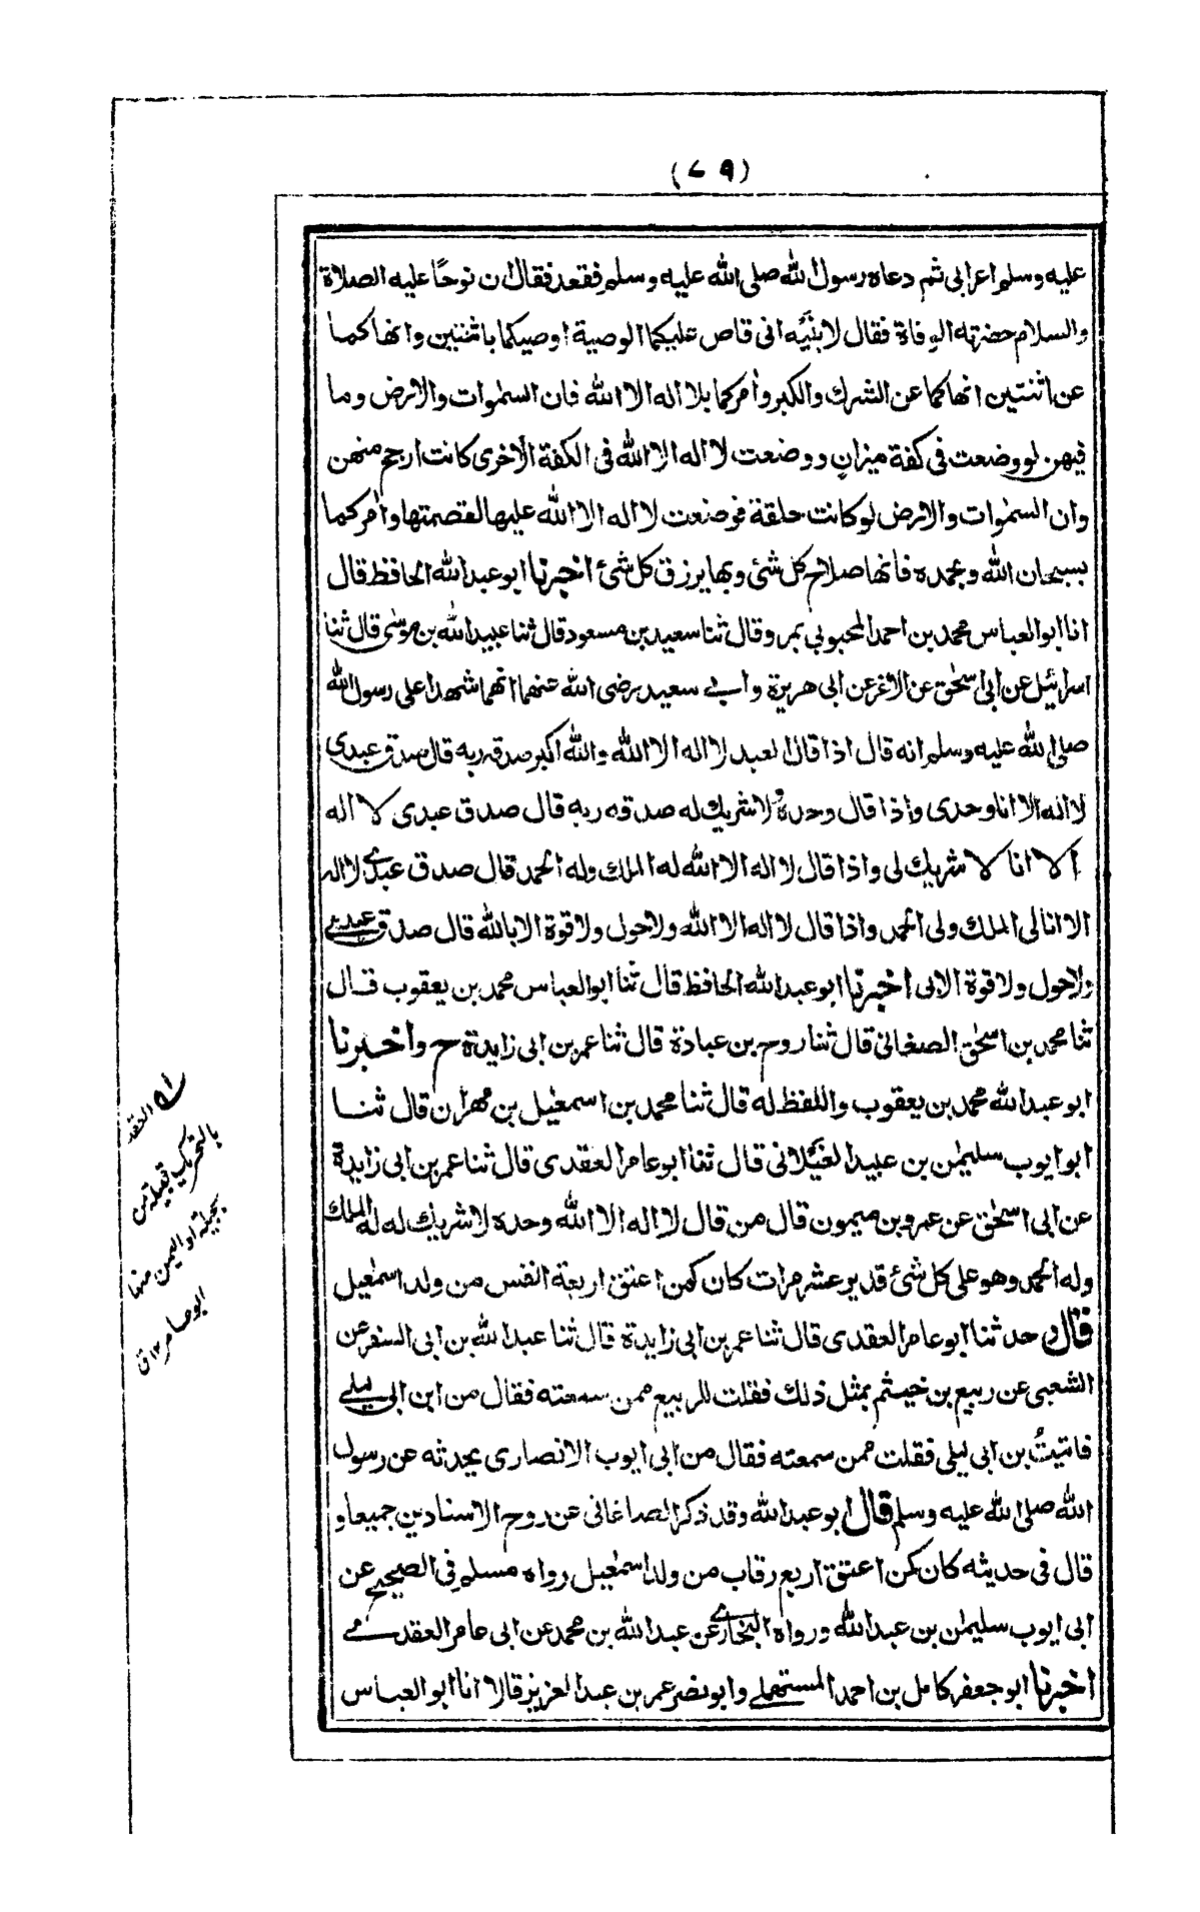 (٧٩)
عليه وسلم اعرابى ثم دعاه رسول الله صلى الله عليه وسلم فقعد فقال ان نوحًا عليه الصلاة
والسلام حضرته الوفاة فقال لابنَيه انى قاص عليكما الوصية اوصيكما باثنتين وانهاكما
عن اثنتين انهاكما عن الشرك والكبر وأمركما بلا اله الا الله فان السمٰوات والارض وما
فيهن لو وضعت فى كفة ميزان ووضعت لا اله الا الله فى الكفة الاخرى كانت ارجح منهن
وان السمٰوات والارض لو كانت حلقة فوضعت لا اله الا الله عليها لقصمتها وأمركما
بسبحان الله وبحمده فانها صلاح كل شئ وبها يرزق كل شئ اخبرنا ابو عبد الله الحافظ قال
انا ابو العباس محمد بن احمد المحبوبى بمرو قال ثنا سعيد بن مسعود قال ثنا عبيد الله بن موسٰى قال ثنا
اسرائيل عن ابى اسحٰق عن الاغر عن ابى هريرة وابى سعيد رضى الله عنهما انهما شهدا على رسول الله
صلى الله عليه وسلم انه قال اذا قال العبد لا اله الا الله والله اكبر صدقه ربه قال صدق عبدى
لا اله الا انا وحدى واذا قال وحده لا شريك له صدقه ربه قال صدق عبدى لا اله
الا انا لا شريك لى واذا قال لا اله الا الله له الملك وله الحمد قال صدق عبدى لا اله
الا انا لى الملك ولى الحمد واذا قال لا اله الا الله ولا حول ولا قوة الا بالله قال صدق عبدى
ولا حول ولا قوة الا بى اخبرنا ابو عبد الله الحافظ قال ثنا ابو العباس محمد بن يعقوب قال
ثنا محمد بن اسحٰق الصغانى قال ثنا روح بن عبادة قال ثنا عمر بن ابى زايدة ح واخبرنا
ابو عبد الله محمد بن يعقوب واللفظ له قال ثنا محمد بن اسمٰعيل بن مهران قال ثنا
ابو ايوب سليمٰن بن عبيد الله الغيلانى قال ثنا ابو عامر العقدى قال ثنا عمر بن ابى زايدة
عن ابى اسحٰق عن عمرو بن ميمون قال من قال لا اله الا الله وحده لا شريك له له الملك
وله الحمد وهو على كل شئ قدير عشر مرات كان كمن اعتق اربعة انفس من ولد اسمٰعيل
قال وحدثنا ابو عامر العقدى قال ثنا عمر بن ابى زايدة قال ثنا عبد الله بن ابى السفر عن
الشعبى عن ربيع بن خيثم بمثل ذلك فقلت للربيع ممن سمعته فقال من ابن ابى ليلى
فاتيتُ بن ابى ليلى فقلت ممن سمعته فقال من ابى ايوب الانصارى يحدثه عن رسول
الله صلى الله عليه وسلم قال ابو عبد الله وقد ذكر الصاغانى عن روح الاسنادين جميعا و
قال فى حديثه كان كمن اعتق اربع رقاب من ولد اسمٰعيل رواه مسلم فى الصحيح عن
ابى ايوب سليمٰن بن عبد الله ورواه البخارى عن عبد الله بن محمد عن ابى عامر العقدى
اخبرنا ابو جعفر كامل بن احمد المستملى وابو نصر عمر بن عبد العزيز قالا انا ابو العباس
له العقد
بالتحريك قبيلة من
بجيلة او اليمن منها
ابو عامر ١٢ ق